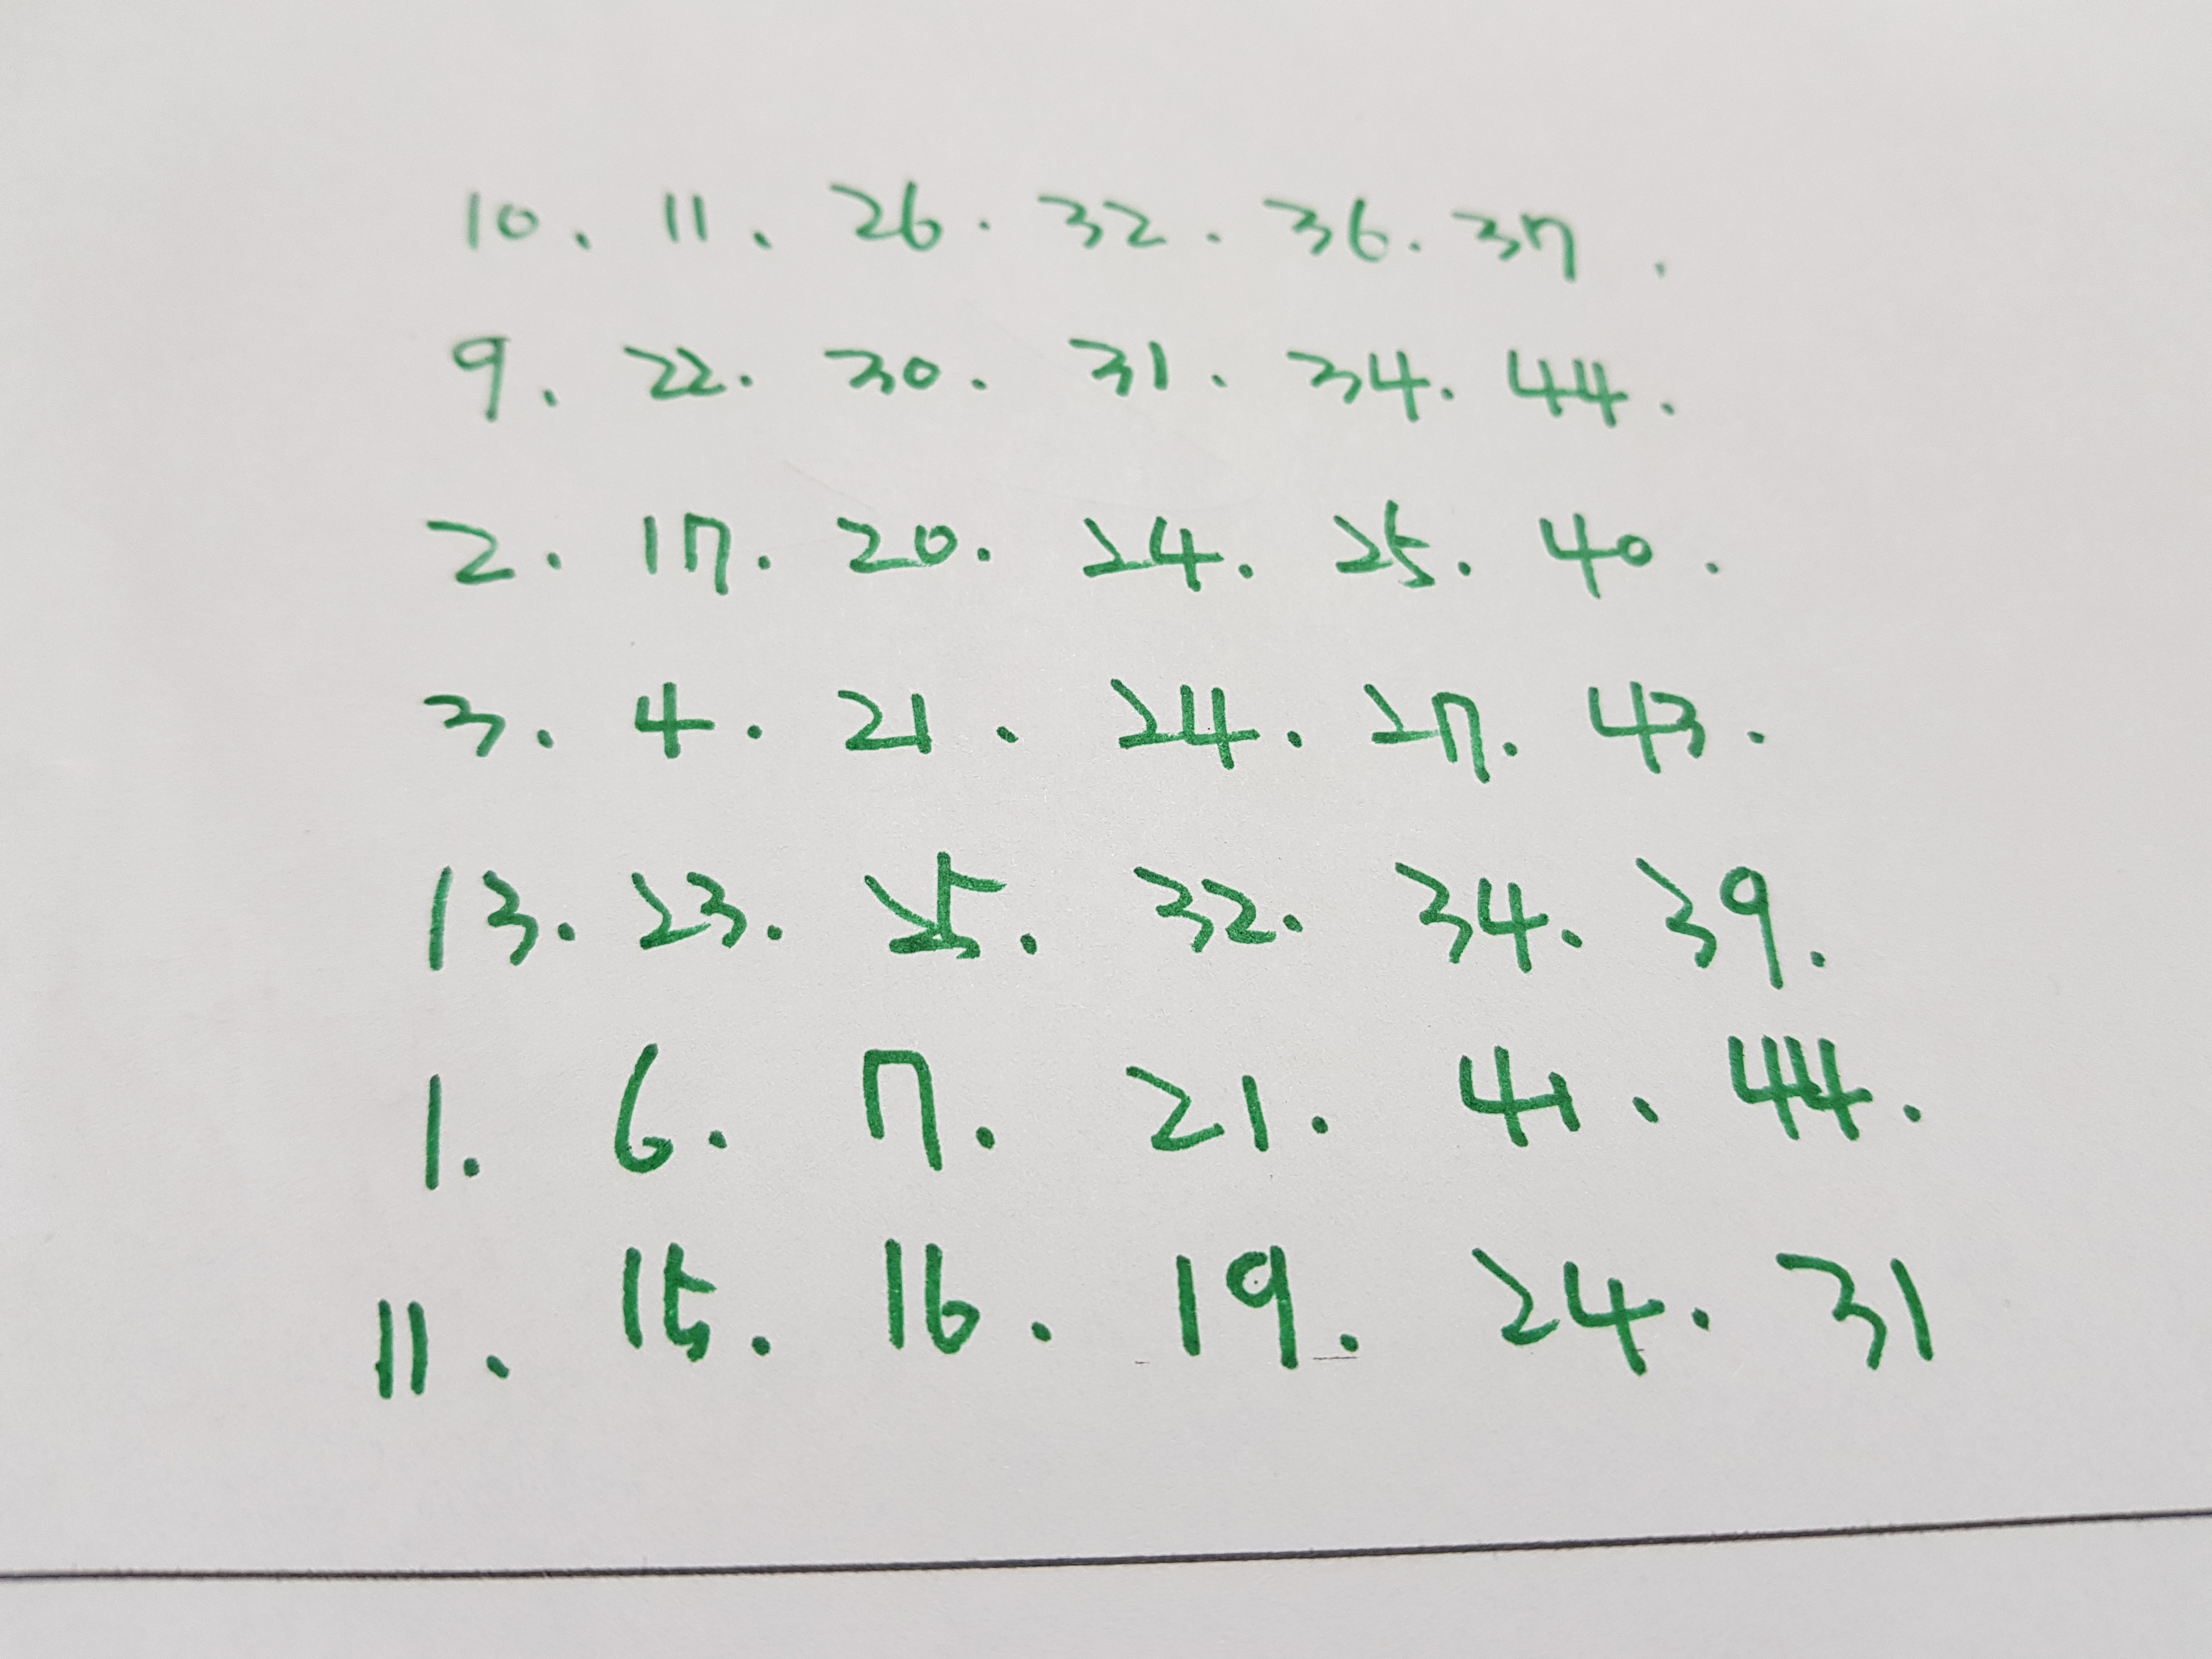 10. 11. 26. 32. 36. 37.
9. 22. 30. 31. 34. 44.
2. 17. 20. 24. 25. 40.
3. 4. 21. 24. 27. 43.
13. 23. 25. 32. 34. 39.
1. 6. 7. 21. 41. 44.
11. 15. 16. 19. 24. 31